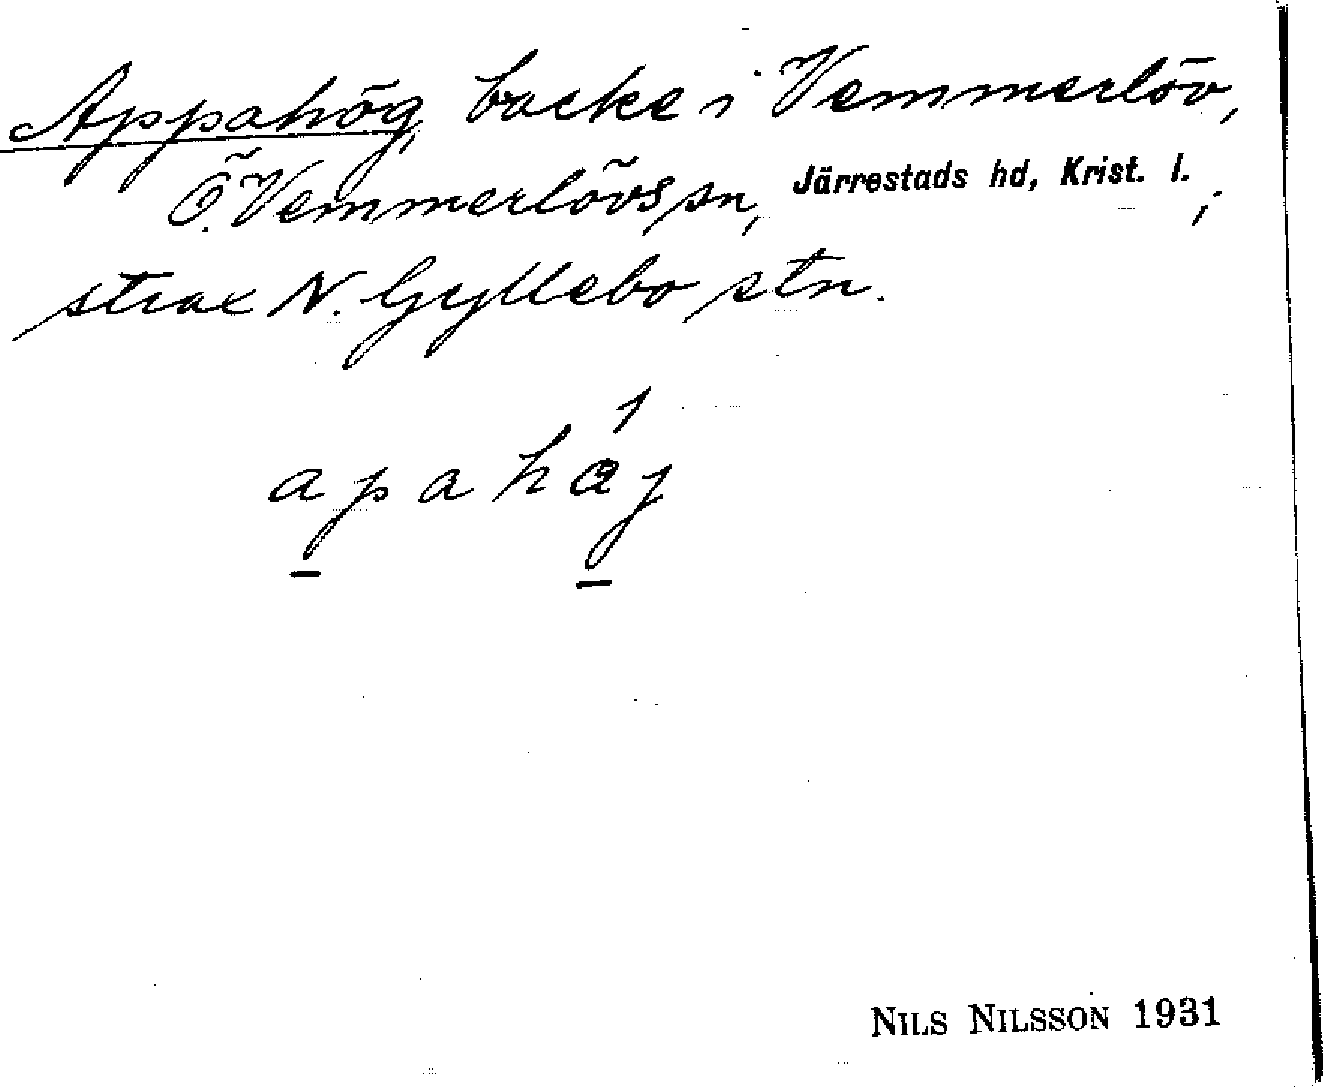 Appahög, backe i Vemmerlöv,
Ö. Vemmerlövs sn, Järrestads hd, Krist. l. ;
strax N. Gyllebo stn.
apahaj
NILS NILSSON 1931